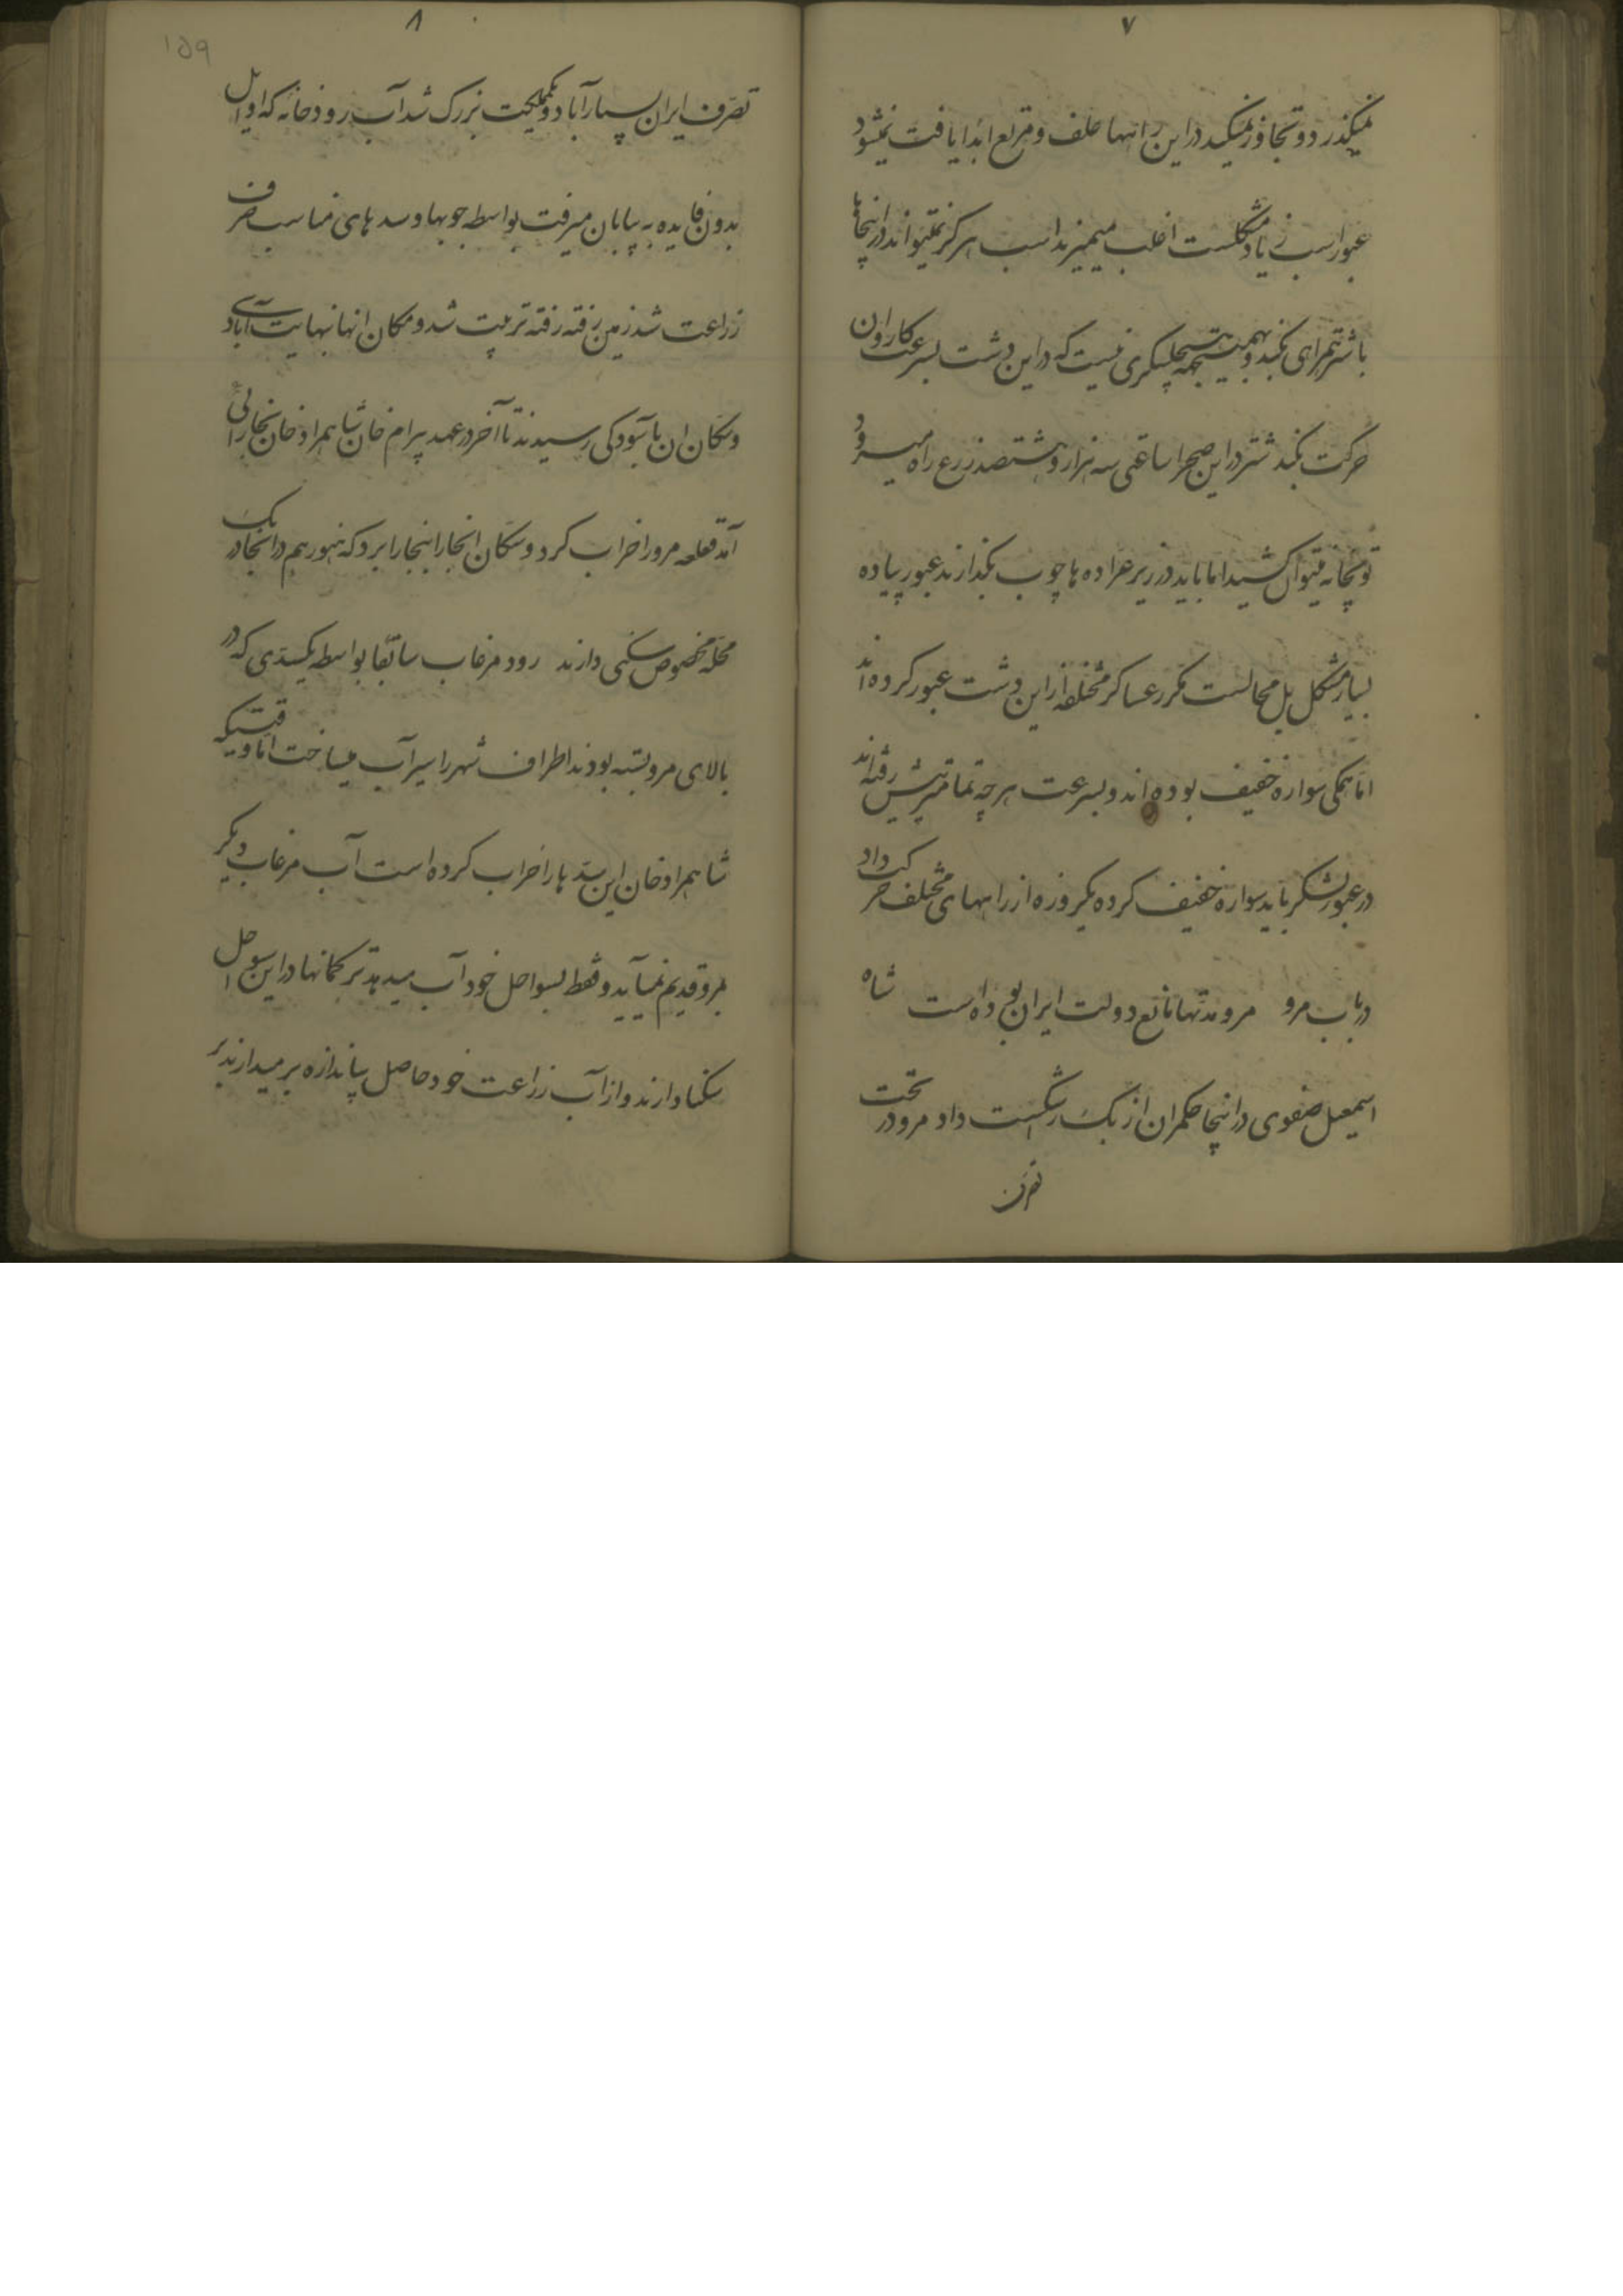 ۷
نمیگذرد و تجاوز نمیکند در این راهها علف و مرتع ابدا یافت نمیشود
عبور اسب زیاد مشکلست اغلب میمیرند اسب هرگز نمیتواند در اینجا با
شتر همراهی بکند و بهمین جهة لشکری نیست که در این دشت بسرعت کاروان
حرکت بکند شتر در این صحرا ساعتی سه هزار و هشتصد زرع راه میرود
توپخانه میتوان کشید اما باید در زیر عراده ها چوب بگذارند عبور پیاده
بسیار مشکل بل محالست مکرر عساکر مختلفه از این دشت عبور کرده اند
اما همگی سواره خفیف بوده اند و بسرعت هر چه تمامتر پیش رفته اند
در عبور لشکر باید سواره خفیف کرده یکروزه از راههای مختلف حرکت داد
در باب مرو مرو مدتها تابع دولت ایران بوده است شاه
اسمعیل صفوی در اینجا حکمران ازبک را شکست داد مرو در تحت
تصرف
۸
۱۵۹
تصرف ایران بسیار آباد و یکمملکت بزرگ شد آب رودخانه که اوایل
بدون فایده به بیابان میرفت بواسطه جویها و سدهای مناسب صرف
زراعت شد زمین رفته رفته تربیت شد و مکان انها نهایت آبادی
و سکان ان بآسودگی رسیدند تا آخر در عهد بیرام خان شاهمراد خان بخارائی
آمد قلعه مرو را خراب کرد و سکان انجا را ببخارا برد که هنوز هم در انجا در یک
محله مخصوص سکنی دارند رود مرغاب سابقا بواسطه یکسدی که در
بالای مرو بسته بودند اطراف شهر را سیرآب میساخت اما وقتیکه
شاهمراد خان این سدها را خراب کرده است آب مرغاب دیگر
بمرو قدیم نمیآید و فقط بسواحل خود آب میدهد ترکمانها در این سواحل
سکنا دارند و از آب زراعت خود حاصل باندازه بر میدارند